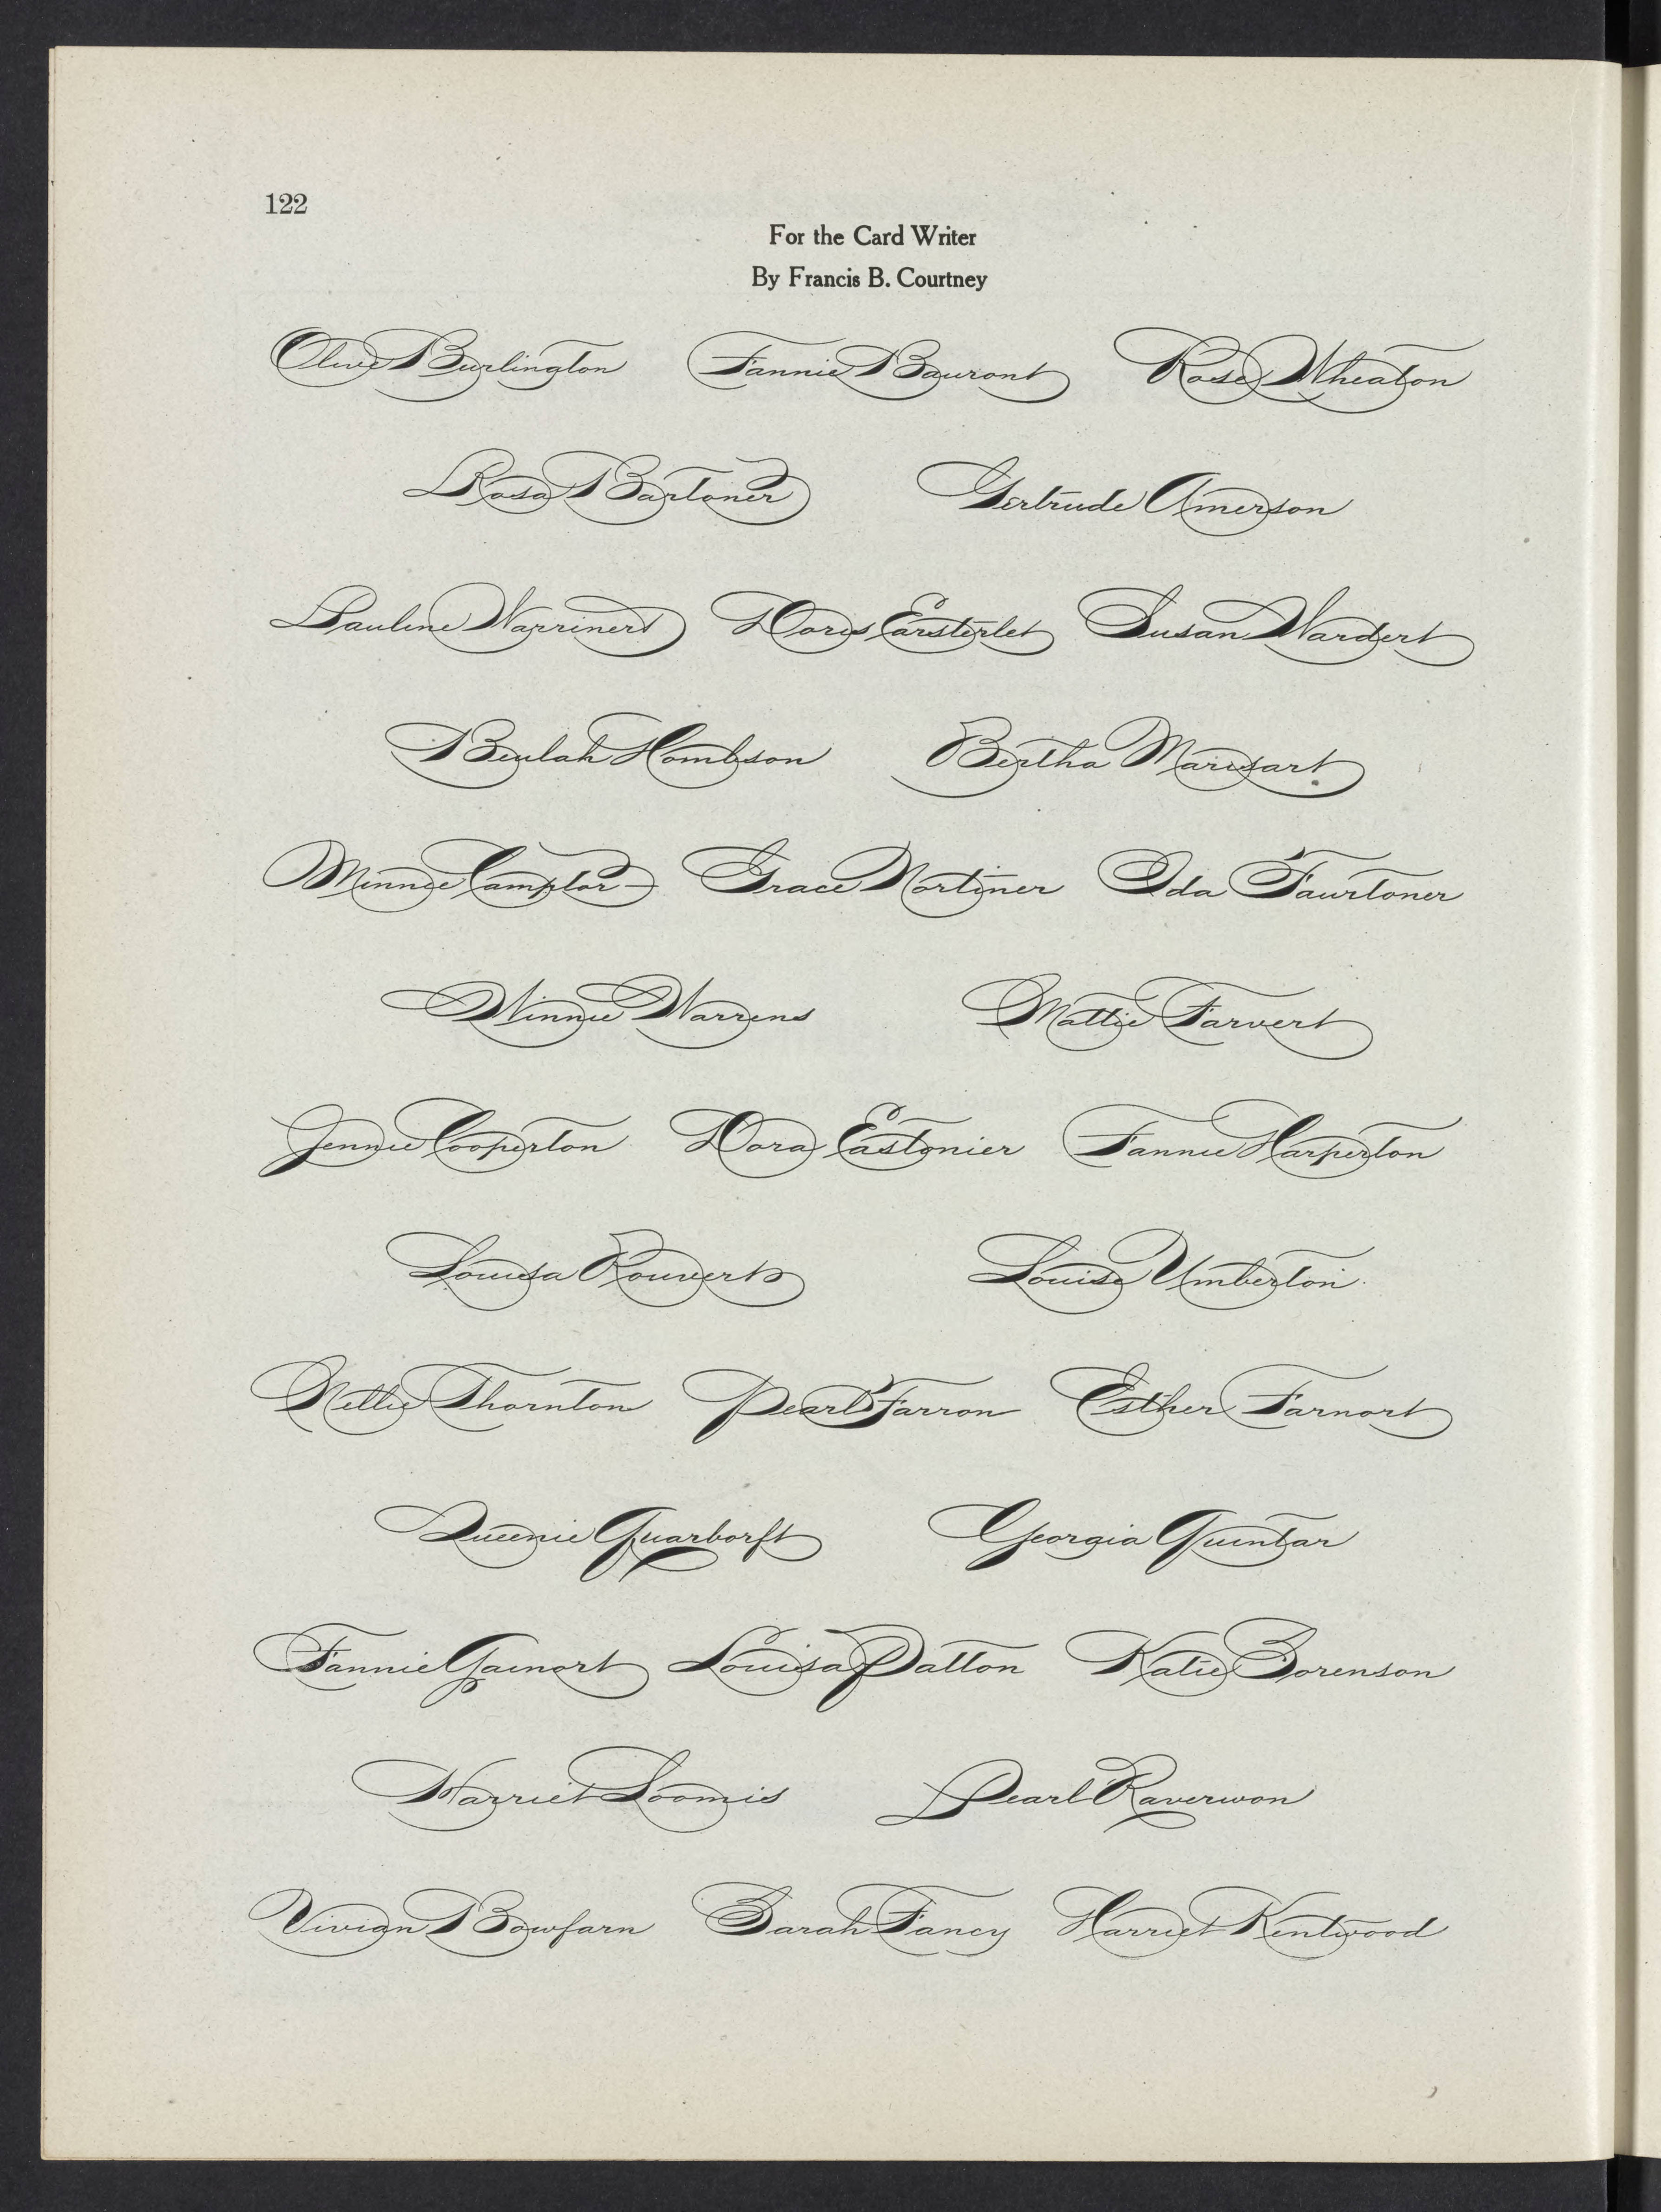 122
For the Card Writer
By Francis B. Courtney
Olive Burlington Fannie Bauront Rose Wheaton
Rosa Bartoner Gertrude Amerson
Pauline Warriners Doris Earsterlet Susan Wardert
Beulah Hombson Bertha Marisart
Minnie Camplor Grace Mortiner Ida Faurtoner
Winnie Warrens Mattie Farvert
Jennie Cooperton Dora Eastonier Fannie Harperton
Louisa Rouverts Louise Umberton
Nettie Thornton Pearl Farron Esther Farnort
Queenie Quarborft Georgia Quintar
Fannie Gainort Louisa Patton Katie Sorenson
Harriet Loomis Pearl Raverwon
Vivian Bowfarn Sarah Fancy Harriet Kentwood